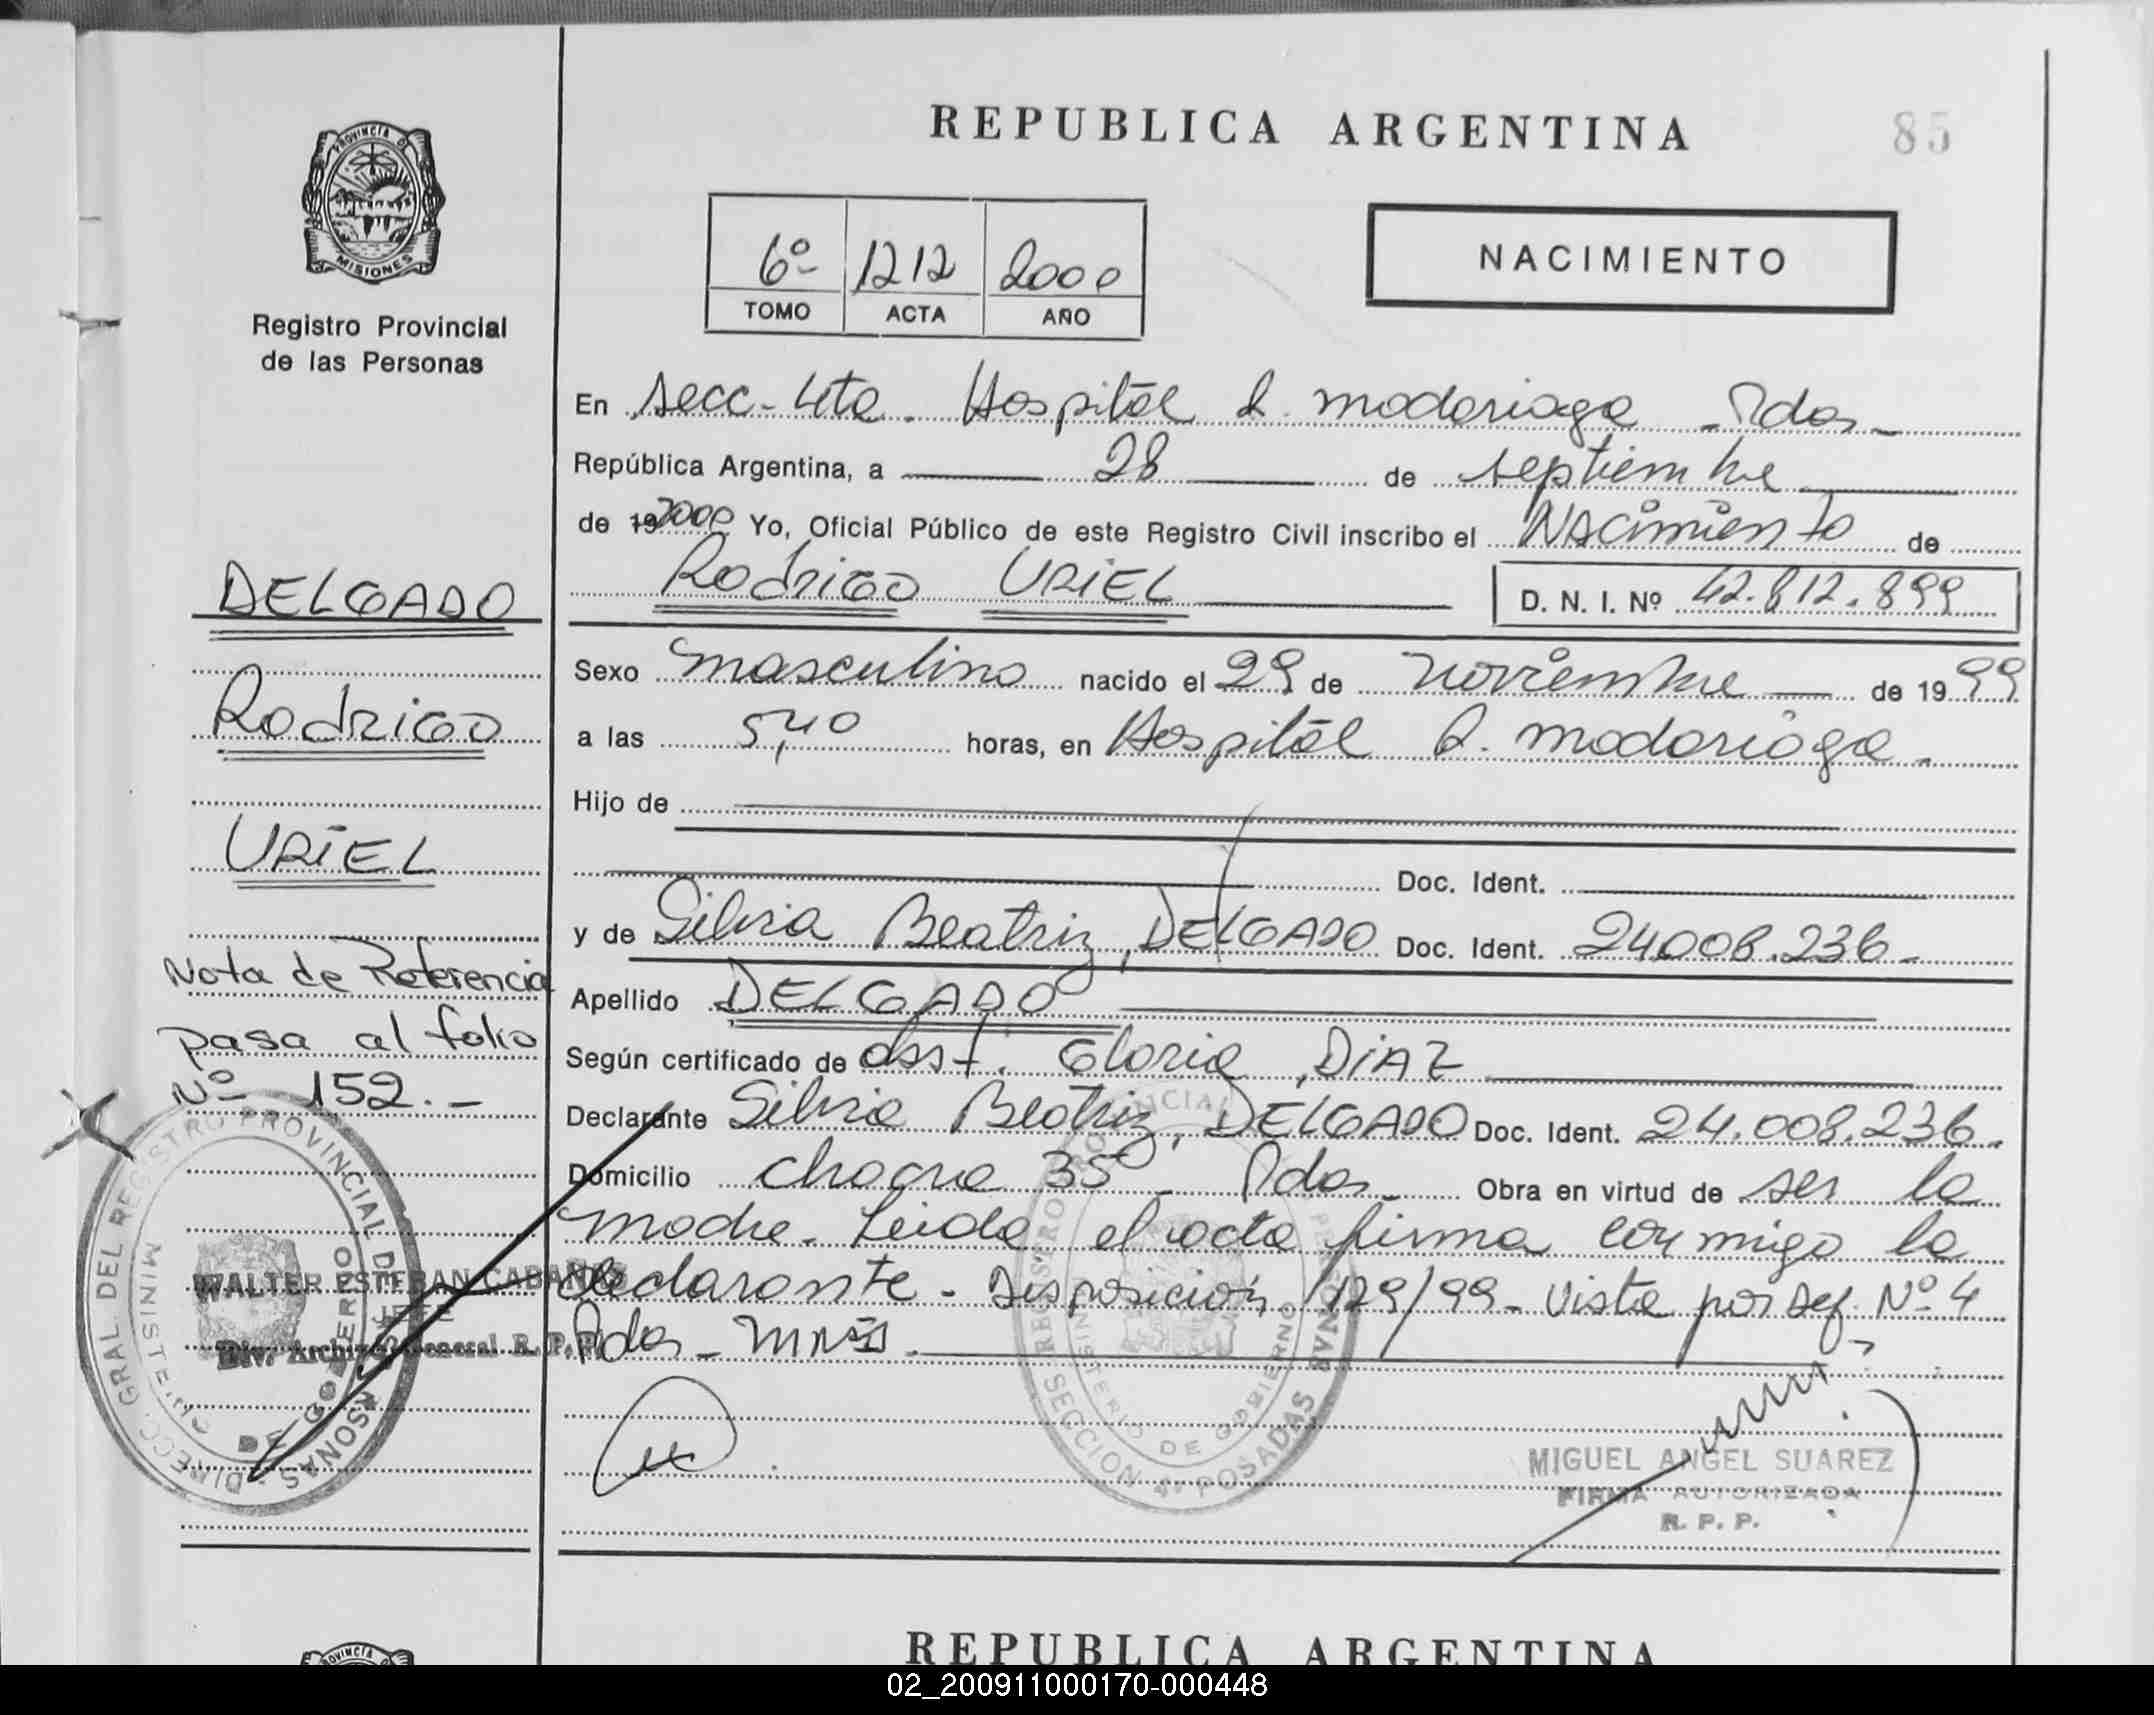 REPUBLICA ARGENTINA
85
PROVINCIA D
MISIONES
Registro Provincial
de las Personas
6º 1212 2000
TOMO ACTA AÑO
NACIMIENTO
En secc. 4ta. Hospital R. madariaga - Pdas -
República Argentina, a 28 de septiembre
de 19 2000 Yo, Oficial Público de este Registro Civil inscribo el NAcimiento de
Rodrigo URIEL D. N. I. Nº 42.812.899
DELGADO
Rodrigo
URIEL
Nota de Referencia
pasa al folio
Nº 152.-
Sexo masculino nacido el 29 de noviembre de 19 99
a las 5,40 horas, en Hospital R. madariaga.
Hijo de
Doc. Ident.
y de Silvia Beatriz, DELGADO Doc. Ident. 24.008.236-
Apellido DELGADO
Según certificado de obst. Gloria, DiAZ
Declarante Silvia Beatriz, DELGADO Doc. Ident. 24.008.236.
Domicilio chacra 35 - Pdas - Obra en virtud de ser la
madre. Leida el acta firma conmigo la
declarante - Disposición 129/99 - Vista por Def. Nº 4
Pdas - Mnes.
DIRECC. GRAL. DEL REGISTRO PROVINCIAL DE LAS PERSONAS
MINISTERIO DE GOBIERNO
WALTER ESTEBAN CABAÑAS
JEFE
Div. Archivo General R. P. P.
REGISTRO PROVINCIAL PERSONAS
MINISTERIO DE GOBIERNO
SECCION 4ª POSADAS
MIGUEL ANGEL SUAREZ
FIRMA AUTORIZADA
R. P. P.
REPUBLICA ARGENTINA
02_200911000170-000448